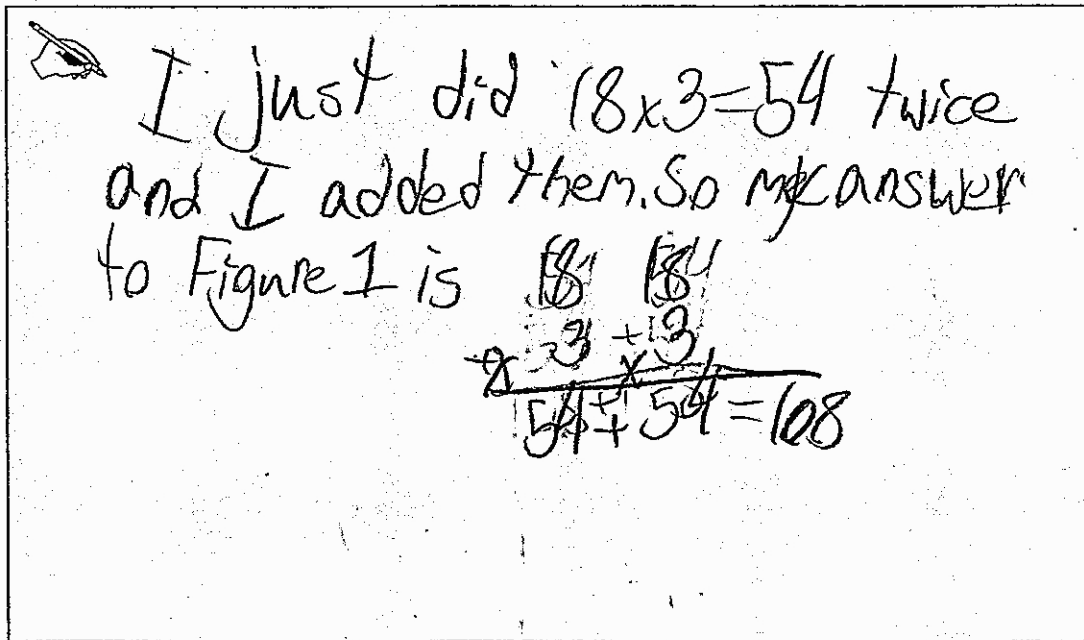 I just did 18x3=54 twice
and I added them. So my answer
to Figure 1 is 18 18
x 3 + x 3
54 + 54 = 108